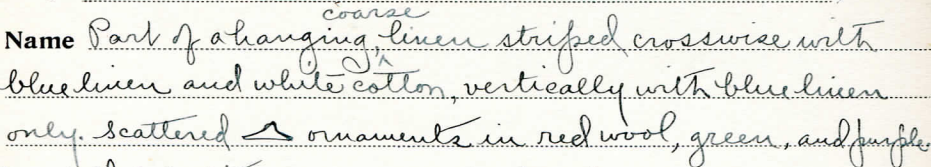 coarse
Name Part of a hanging, linen striped crosswise with
blue linen and white cotton, vertically with blue linen
only. Scattered ornaments in red wool, green, and purple.